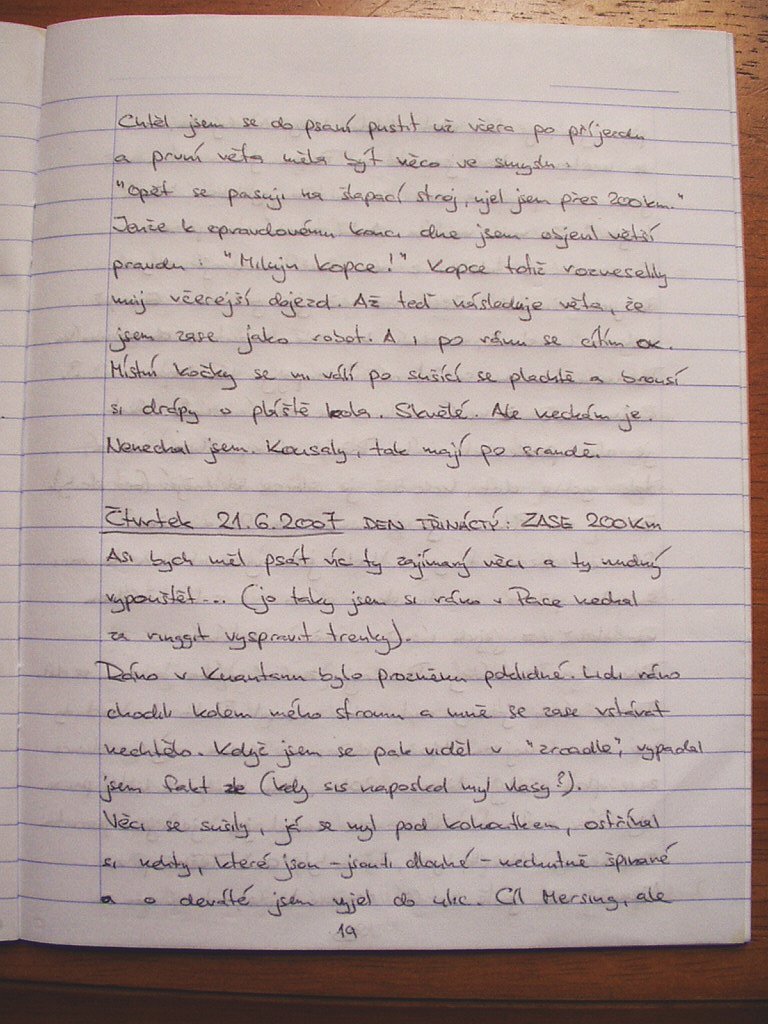 Chtěl jsem se do psaní pustit už včera po příjezdu
a první věta měla být něco ve smyslu:
"Opět se pasuji na šlapací stroj, ujel jsem přes 200km."
Jenže k opravdovému konci dne jsem objevil větší
pravdu: "Miluju kopce!" Kopce totiž rozveselily
můj včerejší dojezd. Až teď následuje věta, že
jsem zase jako robot. A i po ránu se cítím ok.
Místní kočky se mi válí po sušící se plachtě a brousí
si drápy o pláště kola. Skvělé. Ale nechám je.
Nenechal jsem. Kousaly, tak mají po srandě.
Čtvrtek 21.6.2007 DEN TŘINÁCTÝ: ZASE 200km
Asi bych měl psát víc ty zajímavý věci a ty nudný
vypouštět... (jo taky jsem si ráno v Pace nechal
za ringgit vyspravit trenky).
Ráno v Kuantanu bylo prozměnu poklidné. Lidi ráno
chodili kolem mého stromu a mně se zase vstávat
nechtělo. Když jsem se pak viděl v "zrcadle", vypadal
jsem fakt zle (kdy sis naposled myl vlasy?).
Věci se sušily, já se myl pod kohoutkem, ostříhal
si nehty, které jsou - jsouli dlouhé - nechutně špinavé
a o deváté jsem vyjel do ulic. Cíl Mersing, ale
19